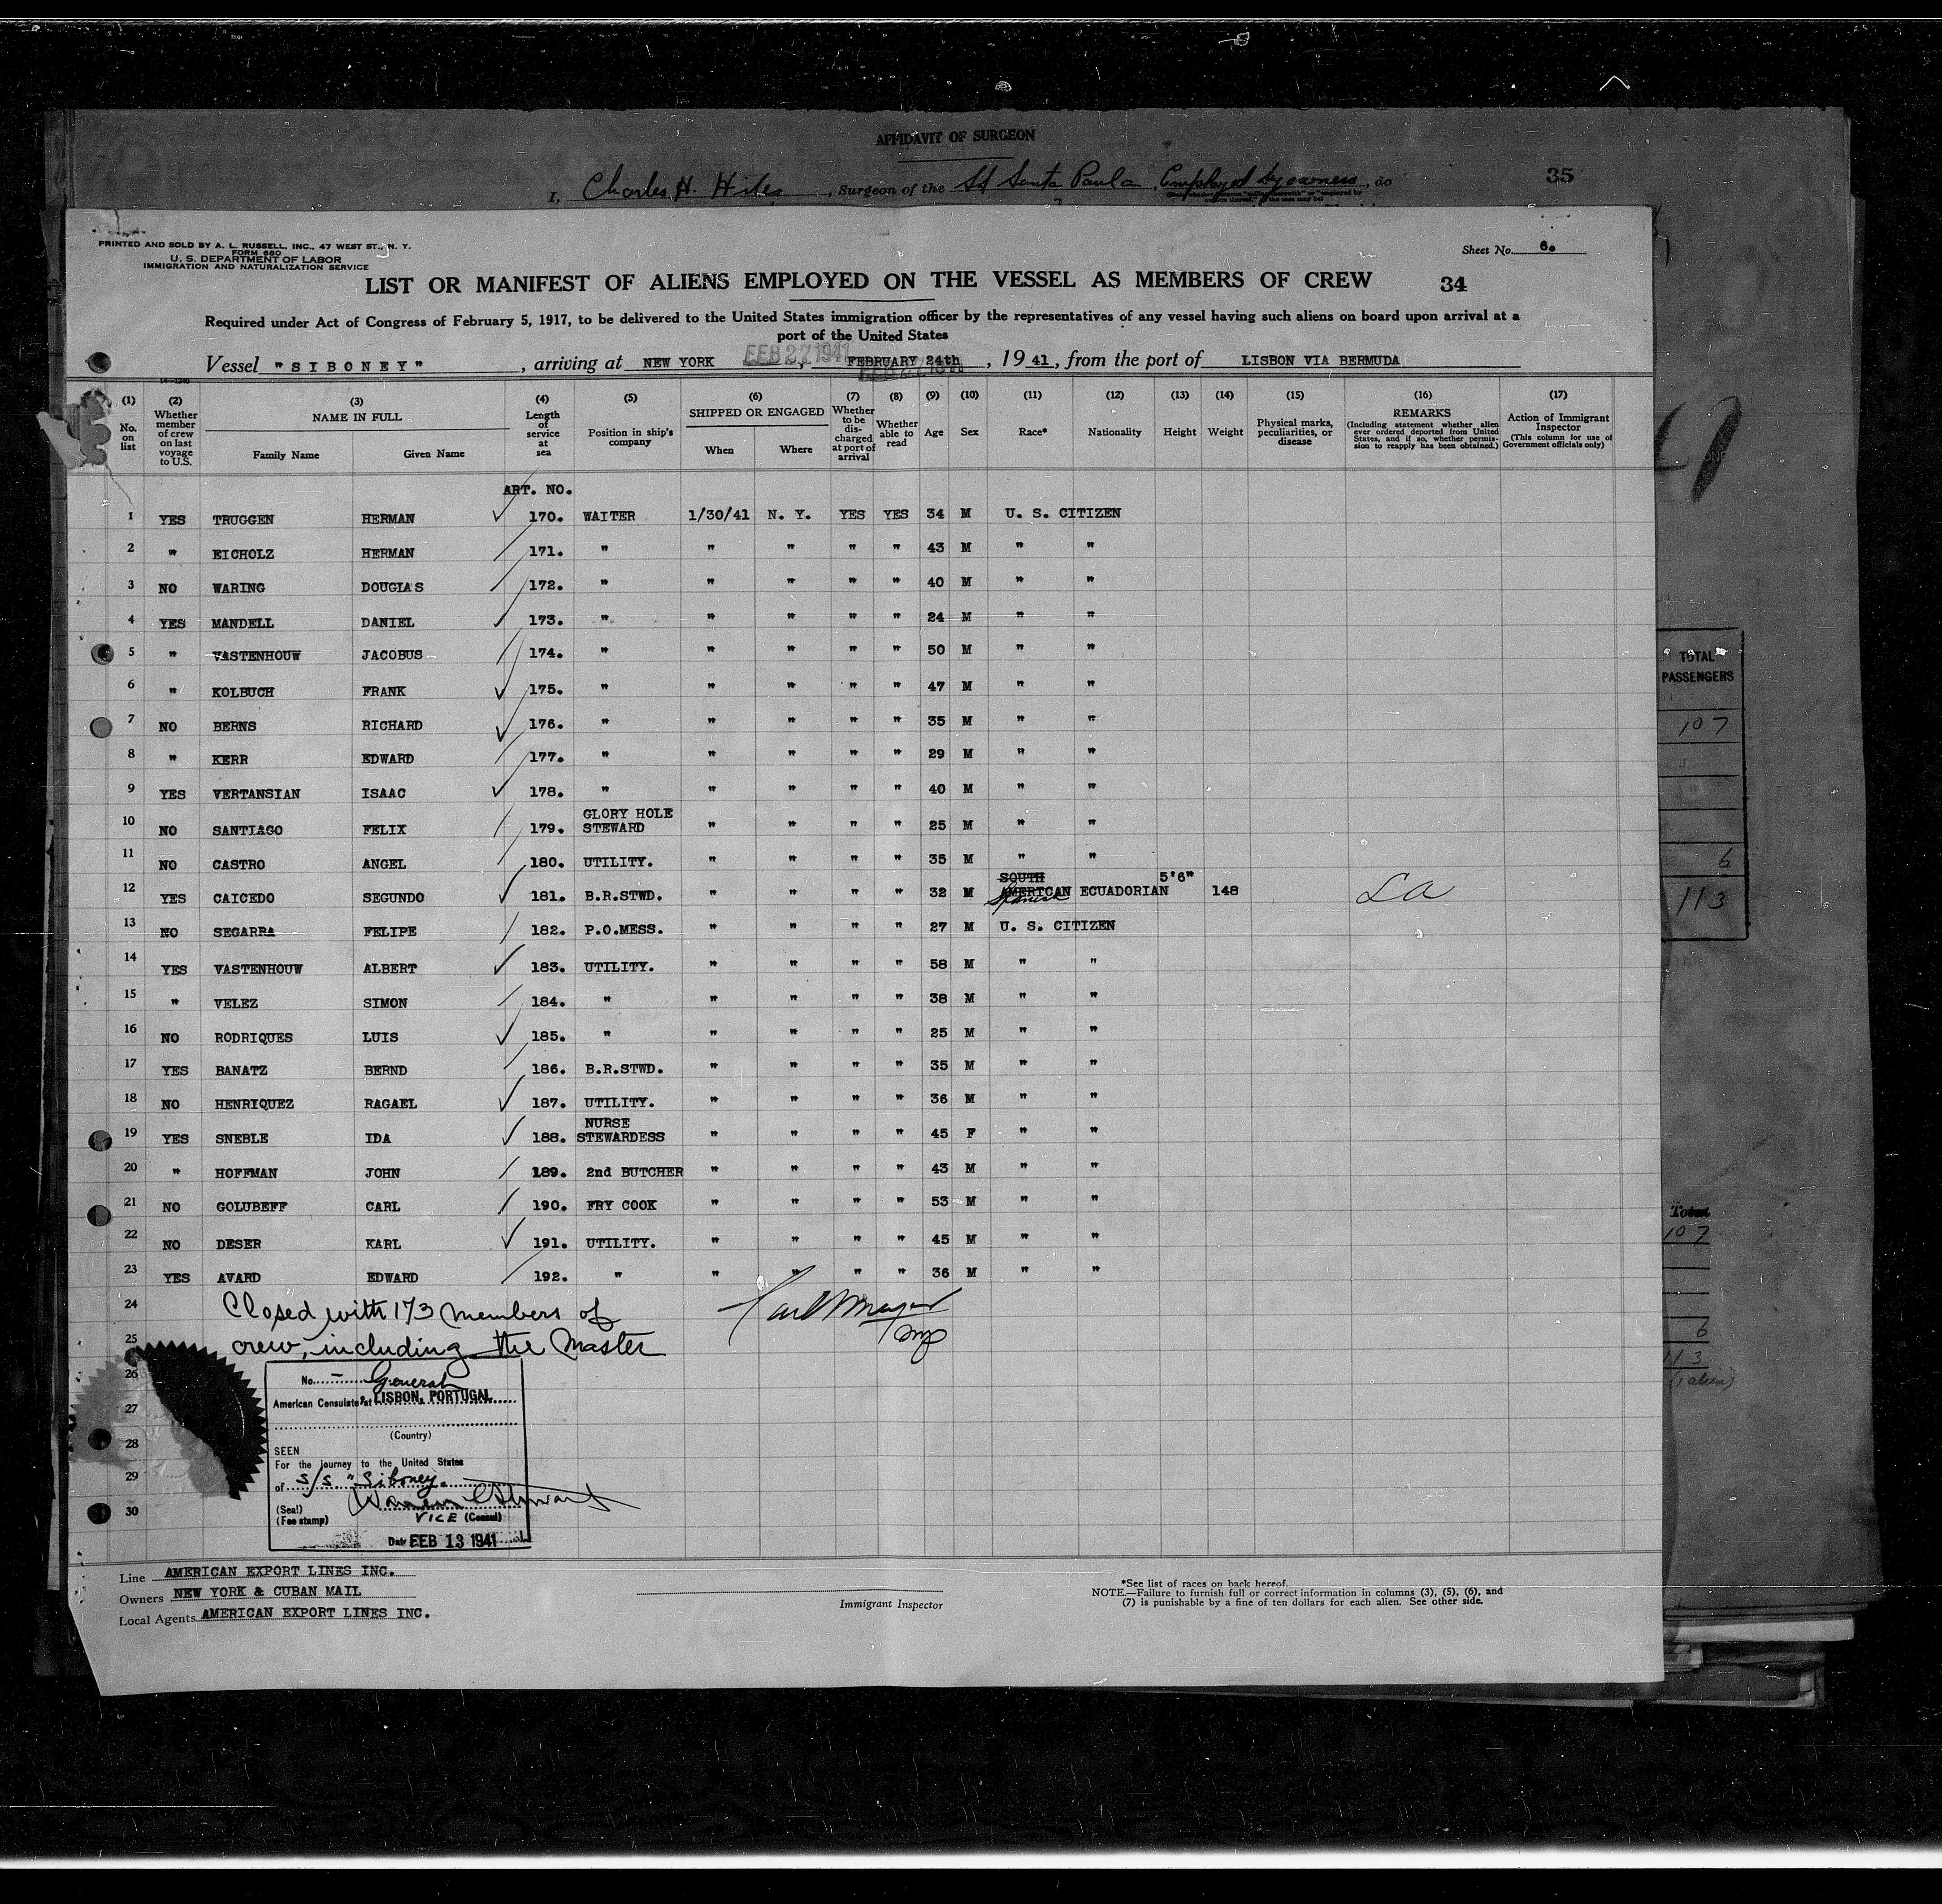 AFFIDAVIT OF SURGEON
I, Charles H. Hiles, Surgeon of the SS Santa Paula, Employed by owners, do
35
PRINTED AND SOLD BY A. L. RUSSELL, INC., 47 WEST ST., N. Y.
FORM 680
U. S. DEPARTMENT OF LABOR
IMMIGRATION AND NATURALIZATION SERVICE
Sheet No. 6.
LIST OR MANIFEST OF ALIENS EMPLOYED ON THE VESSEL AS MEMBERS OF CREW 34
Required under Act of Congress of February 5, 1917, to be delivered to the United States immigration officer by the representatives of any vessel having such aliens on board upon arrival at a
port of the United States
FEB 27 1941
Vessel "SIBONEY", arriving at NEW YORK, FEBRUARY 24th, 1941, from the port of LISBON VIA BERMUDA
(1) No. on list
(2) Whether member of crew on last voyage to U.S.
(3) NAME IN FULL Family Name Given Name
(4) Length of service at sea
(5) Position in ship's company
(6) SHIPPED OR ENGAGED When Where
(7) Whether to be discharged at port of arrival
(8) Whether able to read
(9) Age
(10) Sex
(11) Race*
(12) Nationality
(13) Height
(14) Weight
(15) Physical marks, peculiarities, or disease
(16) REMARKS (Including statement whether alien ever ordered deported from United States, and if so, whether permission to reapply has been obtained.)
(17) Action of Immigrant Inspector (This column for use of Government officials only)
ART. NO.
1 YES TRUGGEN HERMAN 170. WAITER 1/30/41 N. Y. YES YES 34 M U. S. CITIZEN
2 " EICHOLZ HERMAN 171. " " " " " 43 M " "
3 NO WARING DOUGLAS 172. " " " " " 40 M " "
4 YES MANDELL DANIEL 173. " " " " " 24 M " "
5 " VASTENHOUW JACOBUS 174. " " " " " 50 M " "
6 " KOLBUCH FRANK 175. " " " " " 47 M " "
7 NO BERNS RICHARD 176. " " " " " 35 M " "
8 " KERR EDWARD 177. " " " " " 29 M " "
9 YES VERTANSIAN ISAAC 178. " " " " " 40 M " "
10 NO SANTIAGO FELIX 179. GLORY HOLE STEWARD " " " " 25 M " "
11 NO CASTRO ANGEL 180. UTILITY. " " " " 35 M " "
12 YES CAICEDO SEGUNDO 181. B.R.STWD. " " " " 32 M SOUTH AMERICAN Spanish ECUADORIAN 5'6" 148 LA
13 NO SEGARRA FELIPE 182. P.O.MESS. " " " " 27 M U. S. CITIZEN
14 YES VASTENHOUW ALBERT 183. UTILITY. " " " " 58 M " "
15 " VELEZ SIMON 184. " " " " " 38 M " "
16 NO RODRIQUES LUIS 185. " " " " " 25 M " "
17 YES BANATZ BERND 186. B.R.STWD. " " " " 35 M " "
18 NO HENRIQUEZ RAGAEL 187. UTILITY. " " " " 36 M " "
19 YES SNEBLE IDA 188. NURSE STEWARDESS " " " " 45 F " "
20 " HOFFMAN JOHN 189. 2nd BUTCHER " " " " 43 M " "
21 NO GOLUBEFF CARL 190. FRY COOK " " " " 53 M " "
22 NO DESER KARL 191. UTILITY. " " " " 45 M " "
23 YES AVARD EDWARD 192. " " " " " 36 M " "
24 Closed with 173 members of
25 crew, including the Master
26
27
28
29
30
No. - General
American Consulate at LISBON, PORTUGAL
(Country)
SEEN
For the journey to the United States
of S/S. "Siboney.
(Seal)
(Fee stamp)
VICE (Consul)
Date FEB 13 1941
Line AMERICAN EXPORT LINES INC.
Owners NEW YORK & CUBAN MAIL
Local Agents AMERICAN EXPORT LINES INC.
Immigrant Inspector
*See list of races on back hereof.
NOTE.—Failure to furnish full or correct information in columns (3), (5), (6), and
(7) is punishable by a fine of ten dollars for each alien. See other side.
TOTAL
PASSENGERS
107
6
113
Total
107
6
113
(1 alien)